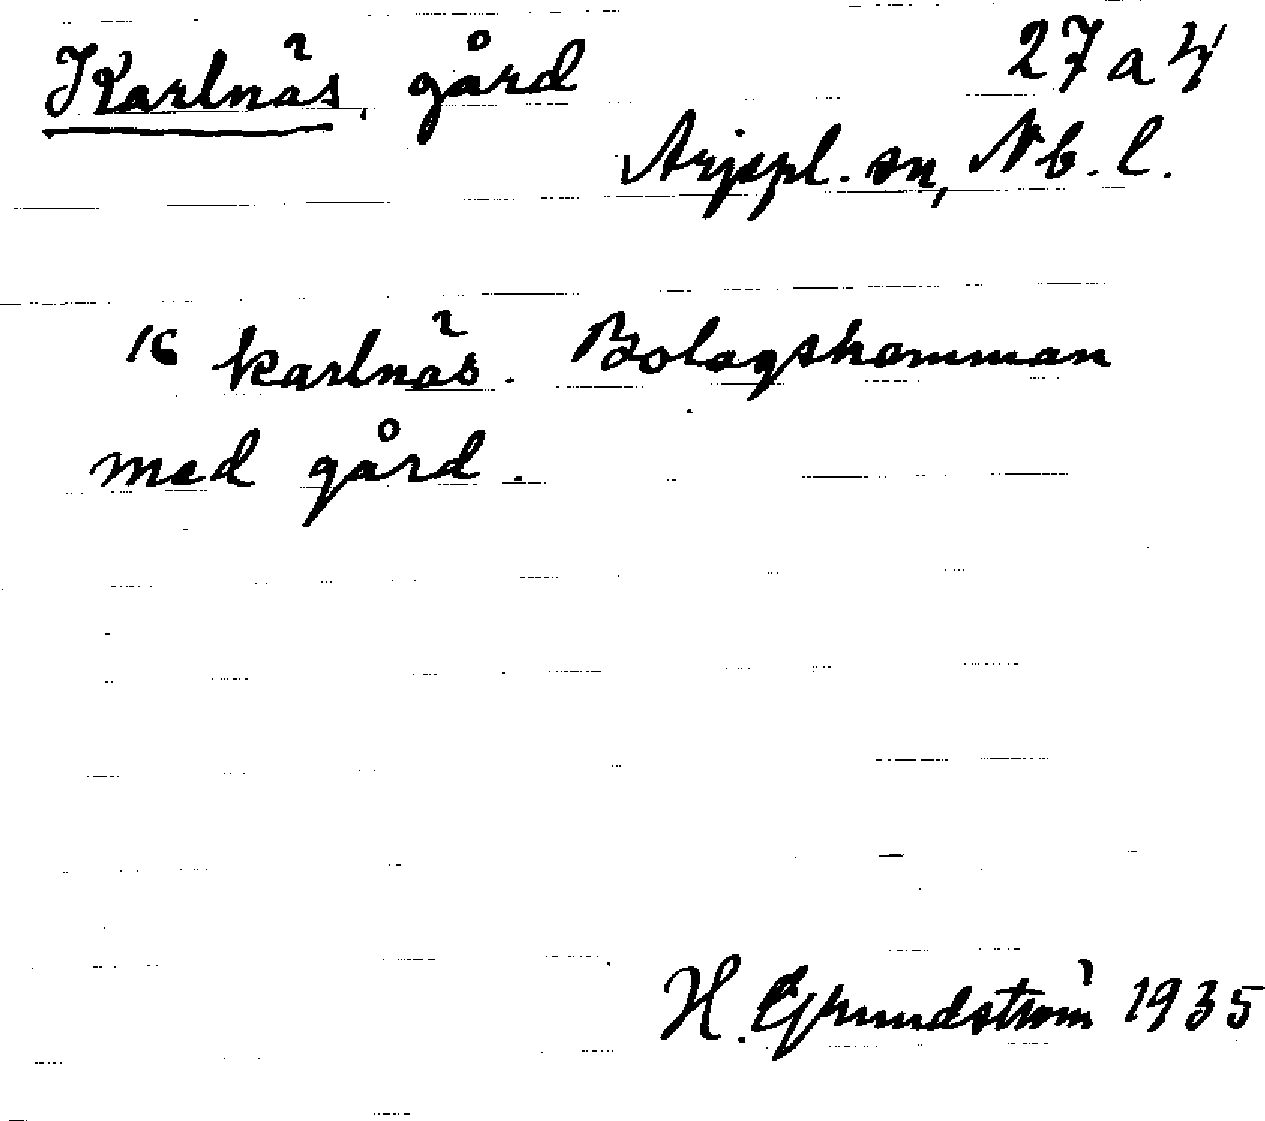 Karlnäs, gård 27a4
Arjepl. sn, Nb. l.
16 karlnäs. Bolagshemman
med gård.
H. Grundström 1935